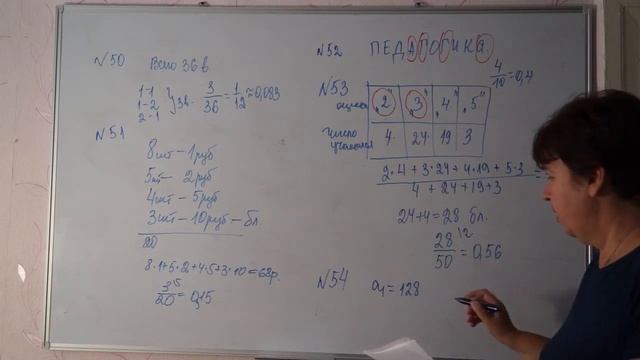 №50 Всего 36 в
1-1
1-2
2-1
} 3в. 3/36 = 1/12 ≈ 0,083
№51
8шт - 1руб
5шт - 2руб
4шт - 5руб
3шт - 10руб - бл.
20
8·1+5·2+4·5+3·10=68р.
3/20 ⁵ = 0,15
№52 ПЕДАГОГИКА
4/10 = 0,4
№53
оценка "2" "3" "4" "5"
число 4 24 19 3
2·4+3·24+4·19+5·3 / 4+24+19+3 =
24+4=28 бл.
28/50 ¹² = 0,56
№54 a₁ = 128